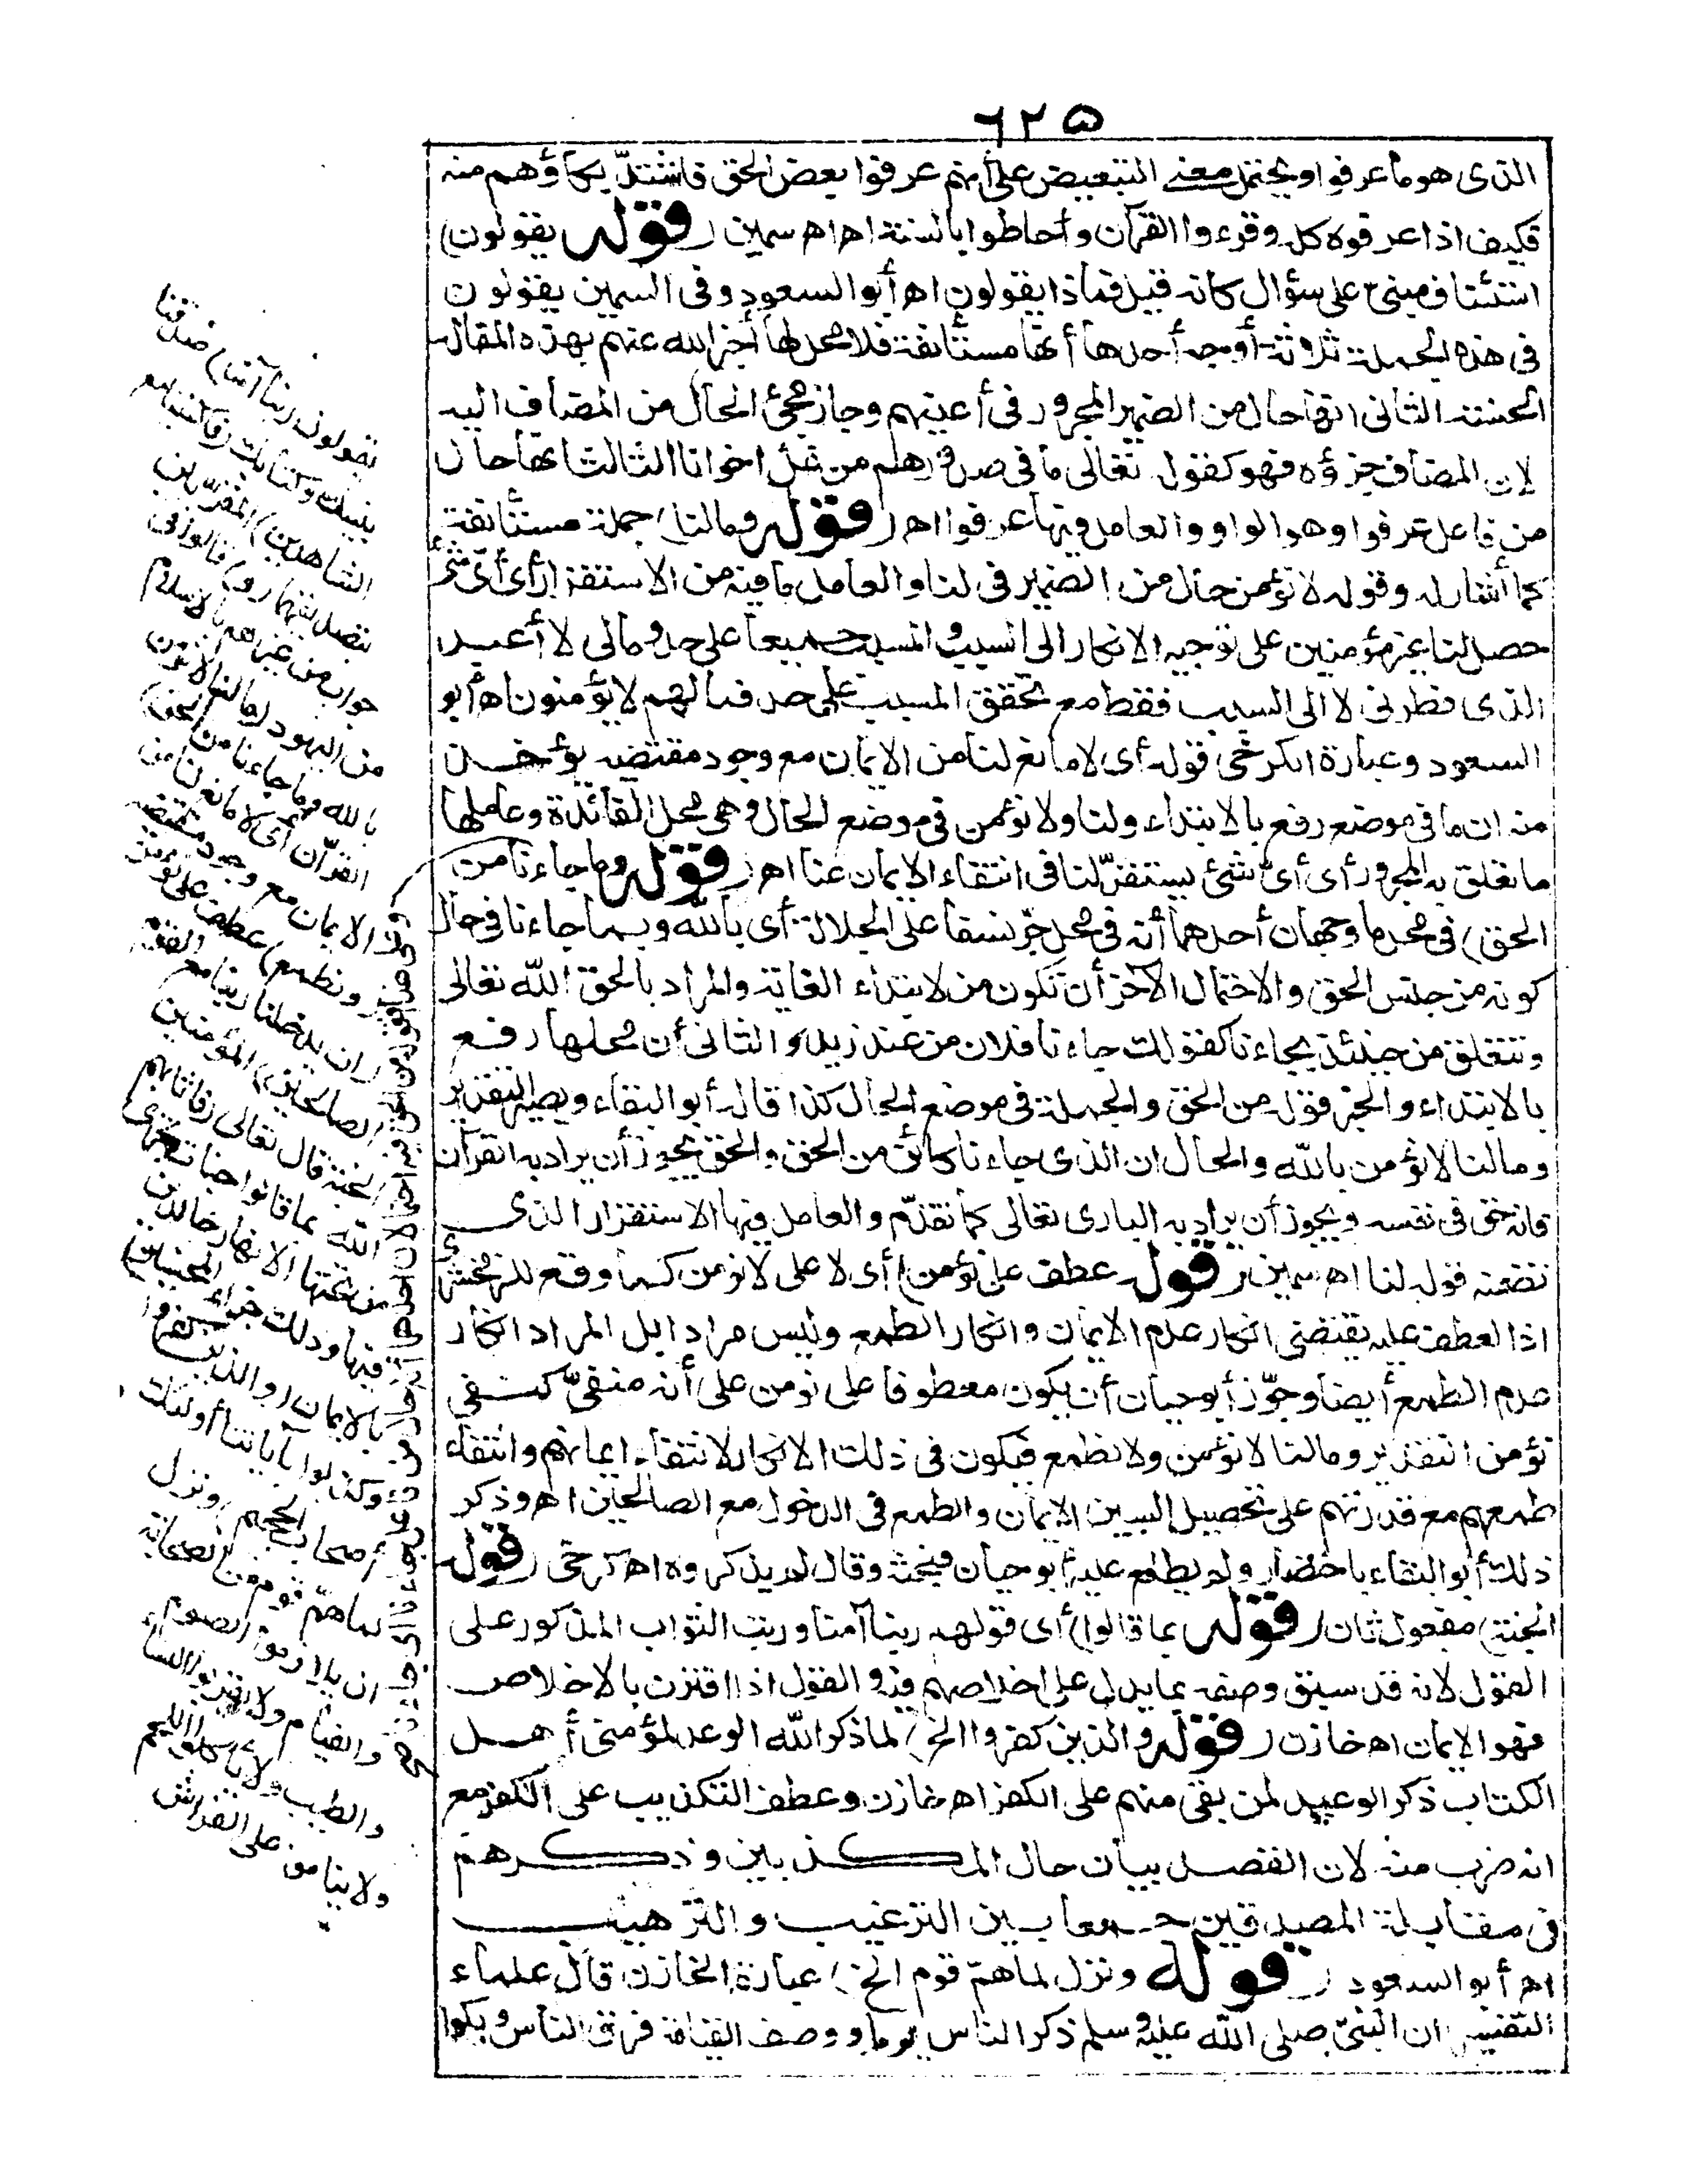 ٦٢٥
الذى هو ما عرفوا ويحتمل معنى التبعيض على أنهم عرفوا بعض الحق فاشتدّ بكاؤهم منه
فكيف اذا عرفوه كله وقرءوا القرآن وأحاطوا بالسنة اهـ اهـ سمين (قوله يقولون)
استئناف مبنى على سؤال كانه قيل فماذا يقولون اهـ أبو السعود وفى السمين يقولون
فى هذه الجملة ثلاثة أوجه أحدها أنها مستأنفة فلا محل لها أخبر الله عنهم بهذه المقالة
الحسنة الثانى انها حال من الضمير المجرور فى أعينهم وجاز مجئ الحال من المضاف اليه
لان المضاف جزؤه فهو كقوله تعالى ما فى صدورهم من غل اخوانا الثالث انها حال
من فاعل عرفوا وهو الواو والعامل فيها عرفوا اهـ (قوله ومالنا) جملة مستأنفة
كما أشار له وقوله لا نؤمن حال من الضمير فى لنا والعامل ما فيه من الاستقرار أى أىّ شئ
حصل لنا غير مؤمنين على توجيه الانكار الى السبب والمسبب جميعا على حد ومالى لا أعبد
الذى فطرنى لا الى السبب فقط مع تحقق المسبب على حد فما لهم لا يؤمنون اهـ أبو
السعود وعبارة الكرخى قوله أى لا مانع لنا من الايمان مع وجود مقتضيه يؤخذ
منه ان ما فى موضع رفع بالابتداء ولنا ولا نؤمن فى موضع الحال وهى محل الفائدة وعاملها
ما تعلق به المجرور أى أىّ شئ يستقرّ لنا فى انتفاء الايمان عنا اهـ (قوله وما جاءنا من
الحق) فى محل ما وجهان أحدهما أنه فى محل جرّ نسقا على الجلالة أى بالله وبما جاءنا فى حال
كونه من جنس الحق والاحتمال الآخر أن تكون من لابتداء الغاية والمراد بالحق الله تعالى
وتتعلق من حينئذ بجاءنا كقولك جاءنا فلان من عند زيد والثانى أن محلها رفع
بالابتداء والخبر قوله من الحق والجملة فى موضع الحال كذا قاله أبو البقاء ويصير التقدير
ومالنا لا نؤمن بالله والحال ان الذى جاءنا كائن من الحق والحق يجوز أن يراد به القرآن
فانه حق فى نفسه ويجوز أن يراد به البارى تعالى كما تقدّم والعامل فيها الاستقرار الذى
تضمنه قوله لنا اهـ سمين (قوله عطف على نؤمن) أى لا على لا نؤمن كما وقع للزمخشرى
اذا العطف عليه يقتضى انكار عدم الايمان وانكار الطمع وليس مرادا بل المراد انكار
عدم الطمع أيضا وجوّز أبو حيان أن يكون معطوفا على نومن على أنه منفىّ كنفى
نؤمن التقدير ومالنا لا نؤمن ولا نطمع فيكون فى ذلك الانكار لانتفاء ايمانهم وانتفاء
طمعهم مع قدرتهم على تحصيل السببين الايمان والطمع فى الدخول مع الصالحين اهـ وذكر
ذلك أبو البقاء باختصار ولم يطلع عليه أبو حيان فبحثه وقال لم يذكروه اهـ كرخى (قوله
الجنة) مفعول ثان (قوله بما قالوا) أى قولهم ربنا آمنا ورتب الثواب المذكور على
القول لانه قد سبق وصفه بما يدل على اخلاصهم فيه والقول اذا اقترن بالاخلاص
فهو الايمان اهـ خازن (قوله والذين كفروا الخ) لما ذكر الله الوعد لمؤمنى أهل
الكتاب ذكر الوعيد لمن بقى منهم على الكفر اهـ خازن وعطف التكذيب على الكفر مع
انه ضرب منه لان القصد بيان حال المكذبين وذكرهم
فى مقابلة المصدقين جمعا بين الترغيب والترهيب
اهـ أبو السعود (قوله ونزل لما همّ قوم الخ) عبارة الخازن قال علماء
التفسير ان النبىّ صلى الله عليه وسلم ذكر الناس يوما ووصف القيامة فرق الناس وبكوا
يقولون ربنا آمنا) صدقنا
بنبيك وكتابك (فاكتبنا مع
الشاهدين) المقربين
بتصديقهما (و) قالوا فى
جواب من عيرهم بالاسلام
من اليهود (مالنا لا نؤمن
بالله وما جاءنا من الحق)
القرآن أى لا مانع لنا من
الايمان مع وجود مقتضيه
(ونطمع) عطف على نؤمن
(ان يدخلنا ربنا مع القوم
الصالحين) المؤمنين
الجنة قال تعالى (فأثابهم
الله بما قالوا جنات تجرى
من تحتها الانهار خالدين
فيها وذلك جزاء المحسنين)
بالايمان (والذين كفروا
وكذبوا بآياتنا أولئك
أصحاب الجحيم) ونزل
لما همّ قوم من الصحابة
ان يلازموا الصوم
والقيام ولا يقربوا النساء
والطيب ولا يأكلوا اللحم
ولا يناموا على الفراش